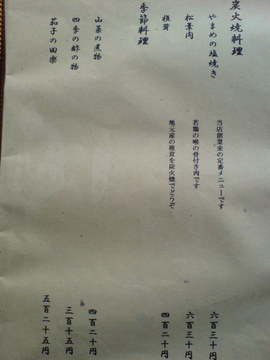 炭火焼料理
やまめの塩焼き 当店創業来の定番メニューです 六百三十円
松葉肉 若鶏の喉の骨付き肉です 六百三十円
椎茸 地元産の椎茸を炭火焼でどうぞ 四百二十円
季節料理
山菜の煮物 四百二十円
四季の酢の物 三百十五円
茄子の田楽 五百二十五円